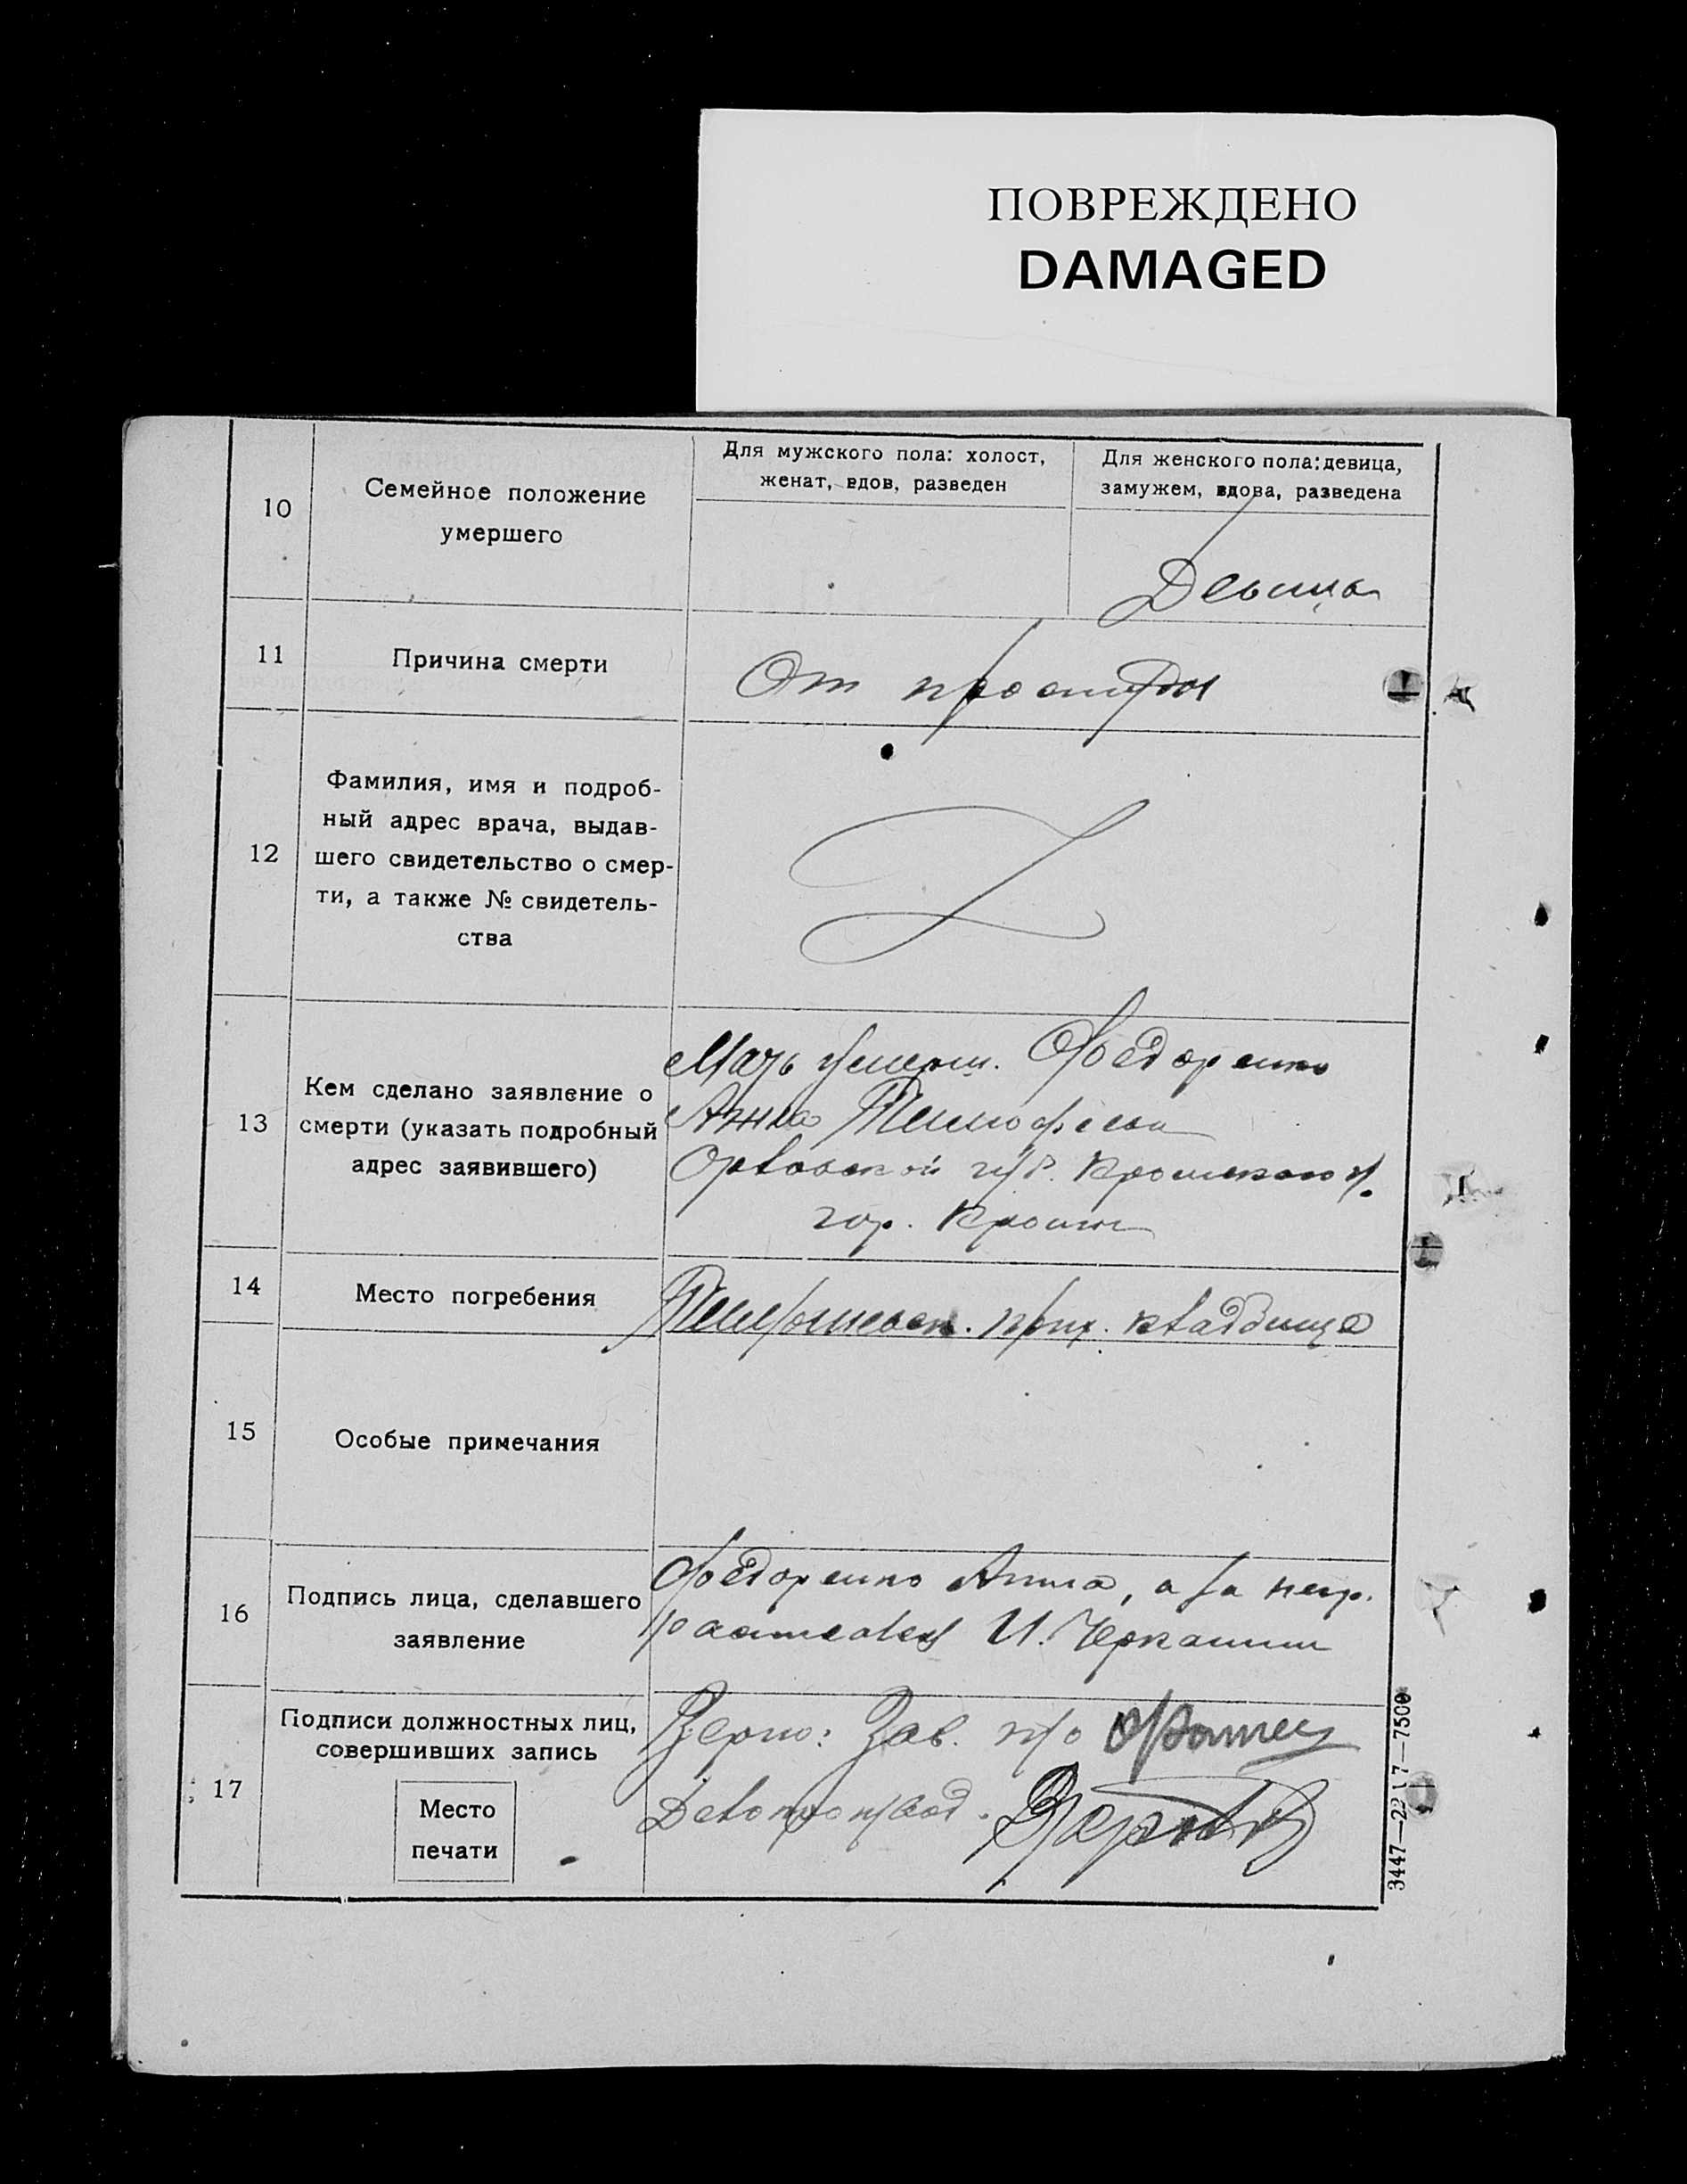 ПОВРЕЖДЕНО
DAMAGED
10
Семейное положение
умершего
Для мужского пола: холост,
женат, вдов, разведен
Для женского пола: девица,
замужем, вдова, разведена
Девица
11
Причина смерти
От простуды
12
Фамилия, имя и подроб-
ный адрес врача, выдав-
шего свидетельство о смер-
ти, а также № свидетель-
ства
13
Кем сделано заявление о
смерти (указать подробный
адрес заявившего)
Мать умерш. Федоренко
Анна Тимофеевна
Орловской губ. Кромского у.
гор. Кромы
14
Место погребения
прих. кладбище
15
Особые примечания
16
Подпись лица, сделавшего
заявление
Федоренко Анна, а за негр.
расписался И. Черкашин
17
Подписи должностных лиц,
совершивших запись
Место
печати
Верно: Зав. п/о
Делопроизвод.
3447—2217—7500